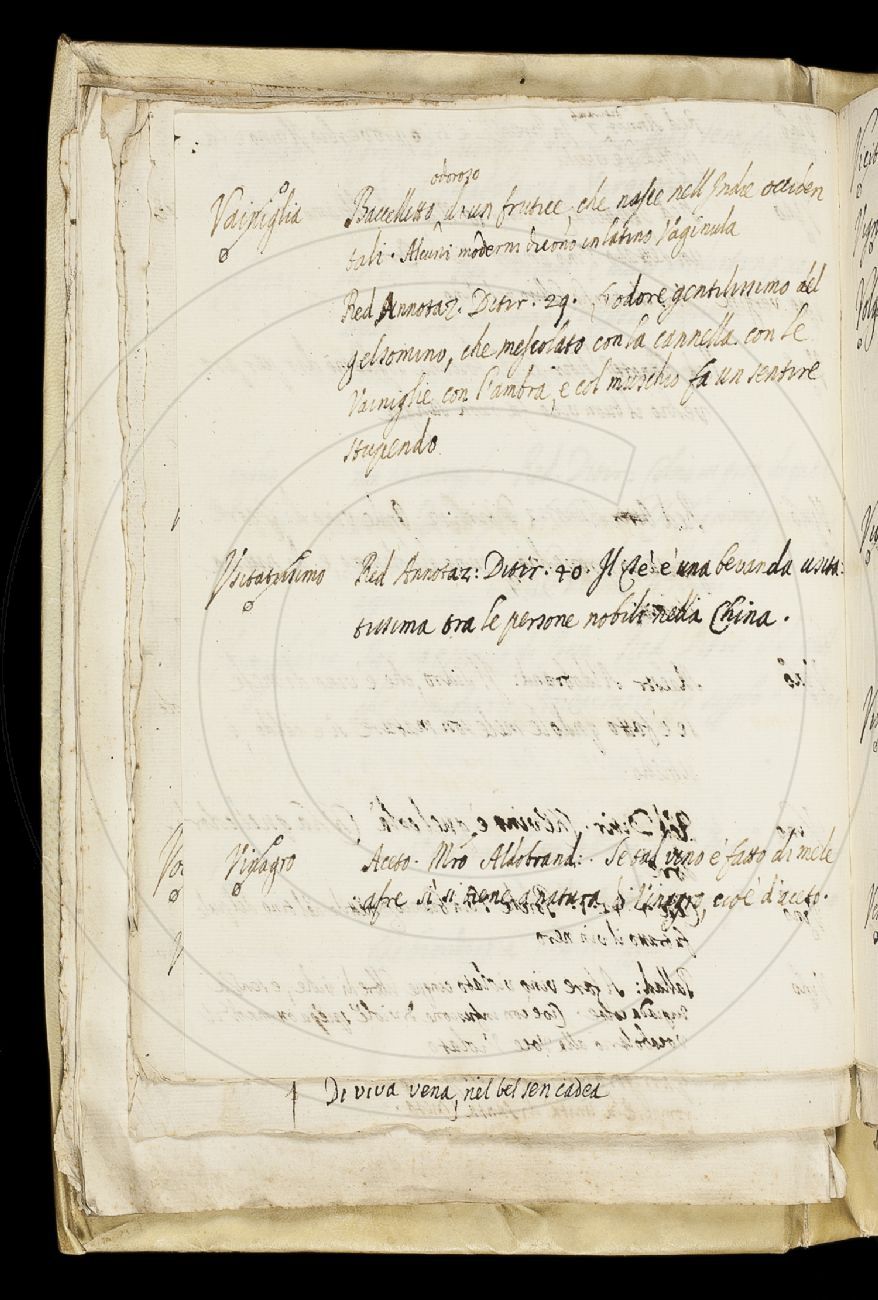 odoroso
Vainiglia Baccelletto, di un frutice, che nasce nell'Indie occiden
tali. Alcuni moderni dicono in latino Vaginula
Red Annotaz. Ditir. 29. odore gentilissimo del
gelsomino, che mescolato con la cannella con le
Vainiglie con l'ambra, e col muschio fa un sentire
stupendo
Usitatissimo Red Annotaz: Ditir. 40. Il Tè è una bevanda usita
tissima tra le persone nobili nella China.
Vinagro Aceto. Mro Aldobrand: Se tal vino è fatto di mele
afre si tiene natura, cioè d'aceto.
Di viva vena, nel bel sen cadea